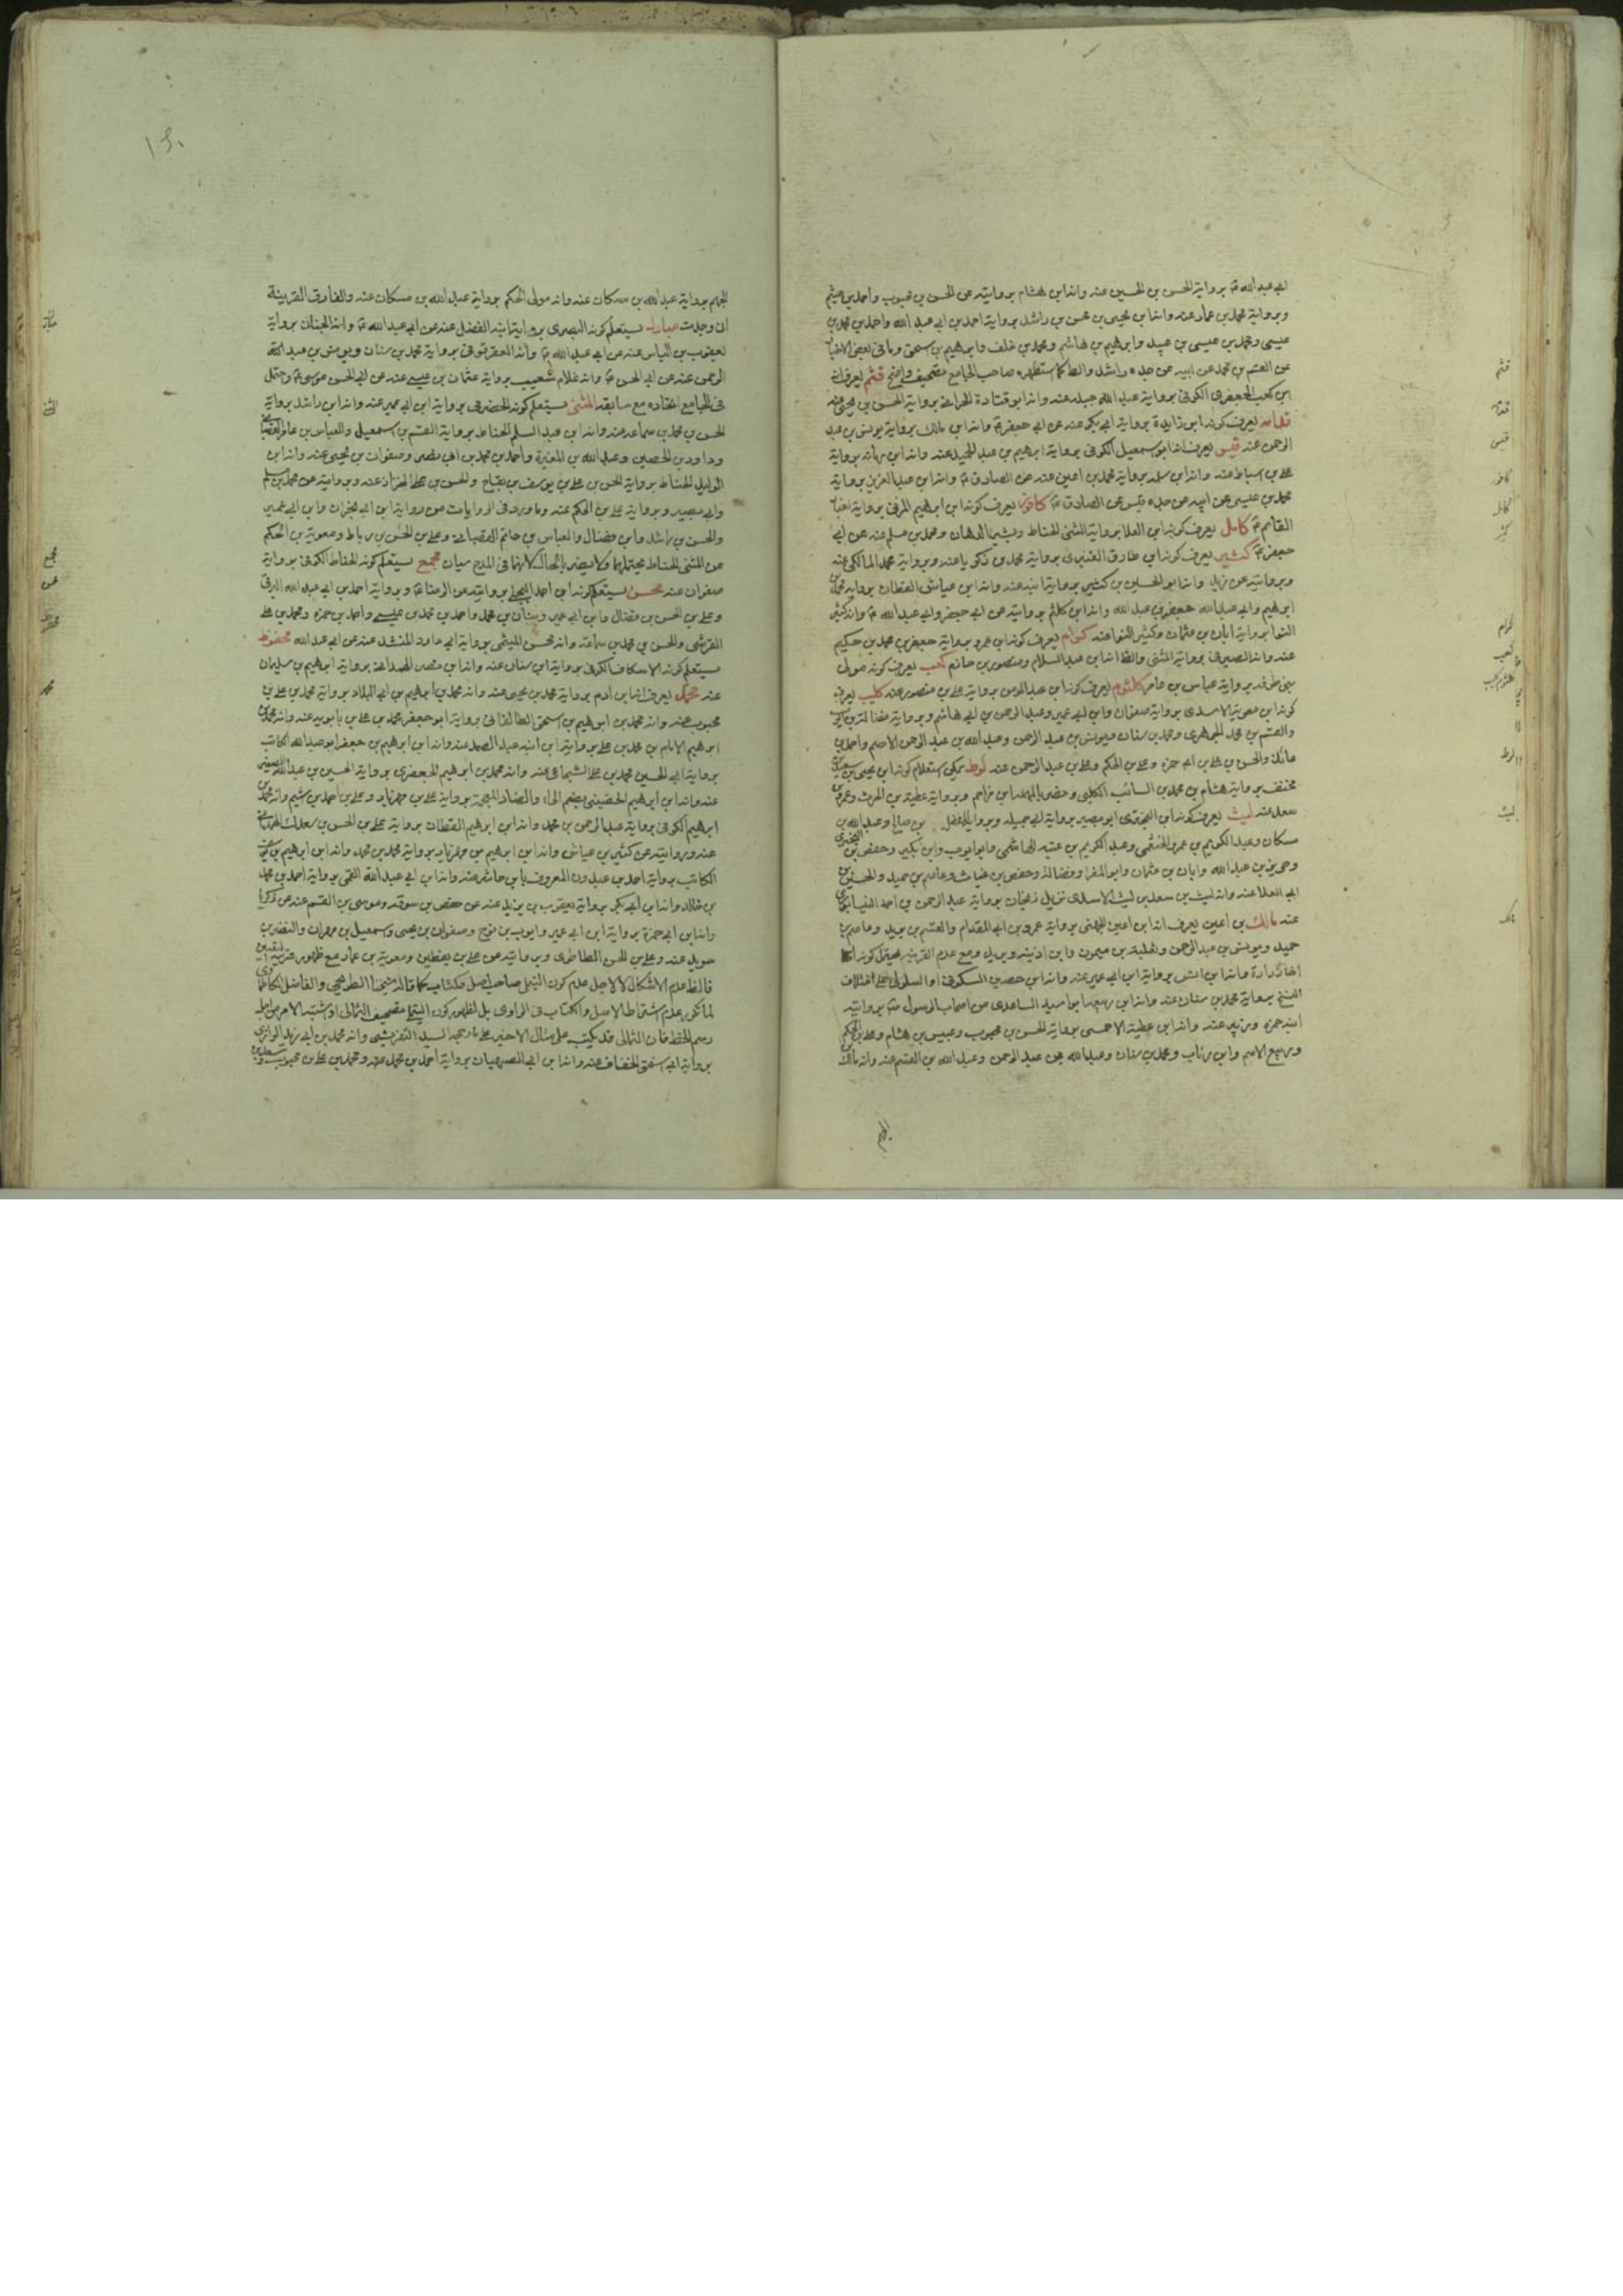 ابي عبد الله ع برواية الحسن بن الحسين عنه وانه ابن هشام بروايته عن الحسن بن محبوب واحمد بن ميثم
وبرواية محمد بن عمار عنه وانه ابن يحيى بن محسن بن راشد برواية احمد بن ابي عبد الله واحمد بن محمد بن
عيسى ومحمد بن عيسى بن عبيد وابراهيم بن هاشم ومحمد بن خلف وابراهيم بن اسحق وما في بعض الاخبار
عن القسم بن محمد عن ابيه عن جده راشد والظ كما استظهره صاحب الجامع تصحيف واضح قثم يعرف انه
ابن كعب الجعفري الكوفي برواية عبد الله جبلة عنه وانه ابو قتادة الحراني برواية الحسن بن عنه
قدامه يعرف كونه ابن زايدة برواية ابي بكر عنه عن ابي جعفر ع وانه ابن مالك برواية يونس بن عبد
الرحمن عنه قيس يعرف انه ابو اسمعيل الكوفي برواية ابرهيم بن عبد الحميد عنه وانه ابن رمانه برواية
علي بن اسباط عنه وانه ابن سلمه برواية محمد بن اعين عنه عن الصادق ع وانه ابن عبد العزيز برواية
محمد بن عيسى عن ابيه عن جده قيس عن الصادق ع كافور يعرف كونه ابن ابراهيم المرني برواية اخبار
القائم ع كامل يعرف كونه ابن العلا برواية المثنى الحناط وبشير الدهان ومحمد بن مسلم عنه عن ابي
جعفر ع كثير يعرف كونه ابن طارق القنبري برواية محمد بن زكريا عنه وبرواية محمد المالكي عنه
وبروايته عن زيد وانه ابو الحسين بن كثير برواية ابنه عنه وانه ابن عياش القطان برواية محمد بن
ابراهيم وابي عبد الله جعفر بن عبد الله وانه ابن كلثم بروايته عن ابي جعفر وابي عبد الله ع وانه كثير
النوا برواية ابان بن عثمان وكثير النوا عنه كرام يعرف كونه ابن عمرو برواية جعفر بن محمد بن حكيم
عنه وانه الصيرفي برواية المثنى والظ انه ابن عبد السلام ومنصور بن حازم كعب يعرف كونه مولى
بني طرفه برواية عباس بن عامر كلثوم يعرف كونه ابن عبد المومن برواية علي بن منصور عنه كليب يعرف
كونه ابن معوية الاسدى برواية صفوان وابن ابي عمير وعبد الرحمن بن ابي هاشم وبرواية فضالة بن ايوب
والقسم بن محمد الجوهري ومحمد بن سنان ويونس بن عبد الرحمن وعبد الله بن عبد الرحمن الاصم واحمد بن
عائذ والحسن بن علي بن ابي حمزه وعلي بن الحكم وعلي بن عبد الرحمن عنه لوط يمكن استعلام كونه ابن يحيى بن سعيد بن
مخنف برواية هشام بن محمد بن السائب الكلبي ونصر بالمهملة ابن مزاحم وبرواية عطية بن الحرث وعمر بن
سعد عنه ليث يعرف كونه ابن البختري ابو بصير برواية ابي جميله وبرواية المفضل بن صالح وعبد الله بن
مسكان وعبد الكريم بن عمرو الخثعمي وعبد الكريم بن عتبه الهاشمي وابو ايوب وابن بكير وحفص بن البختري
وحريز بن عبد الله وابان بن عثمان وابو المغرا وفضالة وحفص بن غياث وعاصم بن حميد والحسين بن
ابي العلا عنه وانه ليث بن سعد بن ليث الاسدى نزيل زنجان برواية عبد الرحمن بن احمد النيسابوري
عنه مالك بن اعين يعرف انه ابن اعين الجهني برواية عمرو بن ابي المقدام والقسم بن بريد وعاصم بن
حميد ويونس بن عبد الرحمن وثعلبة بن ميمون وابن اذينه وبريد ومع عدم القرينه يحتمل كونه
اخا زرارة وانه ابن انس برواية ابن ابي عمير عنه وانه ابن حصين السكوني او السلولي على اختلاف
النسخ برواية محمد بن سنان عنه وانه ابن ربيعه ابو اسيد الساعدى من اصحاب الرسول ص برواية
ابنه حمزه ويزيد عنه وانه ابن عطية الاحمسي برواية الحسن بن محبوب وعبيس بن هشام وعلي بن الحكم
وربيع الاصم وابن رئاب ومحمد بن سنان وعبد الله بن عبد الرحمن وعبد الله بن القسم عنه وانه مالك
الجهم
قثم
قدامه
قيس
كافور
كامل
كثير
كرام
كعب
كلثوم كليب
لوط
ليث
مالك
الجهم برواية عبد الله بن مسكان عنه وانه مولى الحكم برواية عبد الله بن مسكان عنه والفارق القرينة
ان وجدت مبارك يستعلم كونه البصرى برواية ابنه الفضل عنه عن ابي عبد الله ع وانه الجنان برواية
يعقوب بن الياس عنه عن ابي عبد الله ع وانه العقرقوفي برواية محمد بن سنان ويونس بن عبد
الرحمن عنه عن ابي الحسن ع وانه غلام شعيب برواية عثمان بن عيسى عنه عن ابي الحسن موسى ع واحتمل
في الجامع اتحاده مع سابقه المثنى يستعلم كونه الحضرمي برواية ابن ابي عمير عنه وانه ابن راشد برواية
الحسن بن محمد بن سماعه عنه وانه ابن عبد السلم الحناط برواية القسم بن اسمعيل والعباس بن عامر القصباني
وداود بن الحصين وعبد الله بن المغيرة واحمد بن محمد بن ابي نصر وصفوان بن يحيى عنه وانه ابن
الوليد الحناط برواية الحسن بن علي بن يوسف بن بقاح والحسن بن علي الخزاز عنه وبروايته عن محمد بن مسلم
وابي بصير وبرواية علي بن الحكم عنه وما ورد في الروايات من رواية ابن ابي نجران وابن ابي عمير
والحسن بن راشد وابن فضال والعباس بن عامر القصباني وعلي بن الحسن بن رباط ومعوية بن الحكم
عن المثنى الحناط يحتملهما ولا يضر بالحال لانهما في المدح سيان مجمع يستعلم كونه الحناط الكوفي برواية
صفوان عنه محسن يستعلم كونه ابن احمد البجلي بروايته عن الرضا ع وبرواية احمد بن ابي عبد الله البرقي
وعلي بن الحسن بن فضال وابن ابي عمير وبنان بن محمد واحمد بن محمد بن عيسى واحمد بن حمزه ومحمد بن علي
القرشى والحسن بن محمد بن سماعه وانه محسن الميثمي برواية ابي داود المنشد عنه عن ابي عبد الله محفوظ
يستعلم كونه الاسكاف الكوفي برواية ابن سنان عنه وانه ابن نصر الهمداني برواية ابراهيم بن سليمان
عنه محمد يعرف انه ابن ادم برواية محمد بن يحيى عنه وانه محمد بن ابراهيم بن ابي البلاد برواية محمد بن علي بن
محبوب عنه وانه محمد بن ابراهيم بن اسحق الطالقاني برواية ابو جعفر محمد بن علي بن بابويه عنه وانه محمد بن
ابراهيم الامام بن محمد بن علي برواية ابن ابنه عبد الصمد عنه وانه ابن ابراهيم بن جعفر ابو عبد الله الكاتب
برواية ابي الحسين محمد بن علي الشجاعي عنه وانه محمد بن ابراهيم الجعفرى برواية الحسين بن عبد الله الصغير
عنه وانه ابن ابراهيم الحضيني بضم الحاء والضاد المعجمة برواية علي بن مهزيار وعلي بن احمد بن اشيم وانه محمد بن
ابراهيم الكوفي برواية عبد الرحمن بن محمد وانه ابن ابراهيم القطان برواية علي بن الحسن بن سعدك الهمداني
عنه وبروايته عن كثير بن عياش وانه ابن ابراهيم بن مهزيار برواية محمد بن محمد وانه ابن ابراهيم بن يوسف
الكاتب برواية احمد بن عبدون المعروف بابن حاشر عنه وانه ابن ابي عبد الله القمي برواية احمد بن محمد
بن خالد وانه ابن ابي بكر برواية يعقوب بن يزيد عنه عن حفص بن سوقه وموسى بن القسم عنه عن زكريا
وانه ابن ابي حمزة برواية ابن ابي عمير وايوب بن نوح وصفوان بن يحيى واسمعيل بن مهران والنضر بن
سويد عنه وعلي بن الحسن الطاطرى وبروايته عن علي بن يقطين ومعوية بن عمار مع ظهور قرينة
فالظ عدم الاشكال لا لاجل عدم كون التيملي صاحب اصل وكتاب كما قاله شيخنا الطريحي والفاضل الكاظمي
لما تكرر عدم اشتراط الاصل والكتاب في الراوى بل لظهور كون التيملي تصحيف الثمالي اذ اشتبه الامر من اجل
رسم الخط فان الثمالي قد يكتب على مثال الاخير على ما رجحه السيد التفرشي وانه محمد بن ابي زيد الرازى
برواية ابي اسحق الخفاف عنه وانه ابن ابي الصهبان برواية احمد بن محمد عنه ومحمد بن علي بن محبوب وسعد بن
مبارك
المثنى
مجمع
محسن
محفوظ
محمد